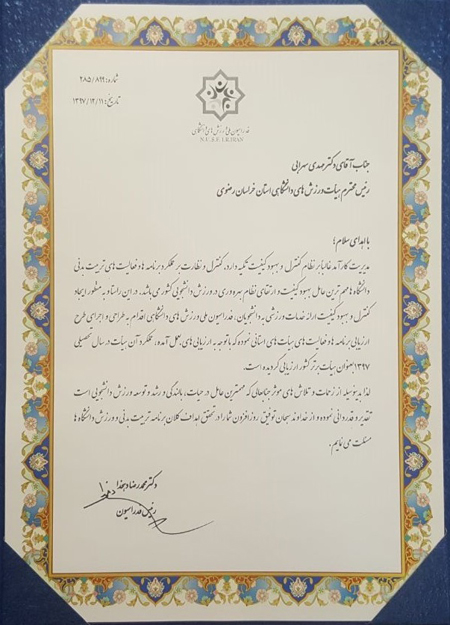 شماره: ۲۸۵/۸۹۹
تاریخ: ۱۳۹۷/۱۲/۱۱
فدراسیون ملی ورزش های دانشگاهی
N.U.S.F. I.R.IRAN
جناب آقای دکتر مهدی سهرابی
رئیس محترم هیات ورزش های دانشگاهی استان خراسان رضوی
با اهدای سلام؛
مدیریت کارآمد غالباً بر نظام کنترل و بهبود کیفیت تکیه دارد، کنترل و نظارت بر عملکرد برنامه ها و فعالیت های تربیت بدنی
دانشگاه ها مهم ترین عامل بهبود کیفیت و ارتقای نظام بهره وری در ورزش دانشجویی کشور می باشد. در این راستا و به منظور ایجاد
کنترل و بهبود کیفیت ارائه خدمات ورزشی به دانشجویان، فدراسیون ملی ورزش های دانشگاهی اقدام به طراحی و اجرای طرح
ارزیابی برنامه ها و فعالیت های هیات های استانی نموده که با توجه به ارزیابی های بعمل آمده، عملکرد آن هیات در سال تحصیلی
۱۳۹۷ بعنوان هیات برتر کشور ارزیابی گردیده است.
لذا بدینوسیله از زحمات و تلاش های موثر جنابعالی که مهمترین عامل در حیات، بالندگی و رشد و توسعه ورزش دانشجویی است
تقدیر و قدردانی نموده و از خداوند سبحان توفیق روزافزون شما را در تحقق اهداف کلان برنامه تربیت بدنی و ورزش دانشگاه ها
مسئلت می نمایم.
دکتر محمدرضا
رئیس فدراسیون